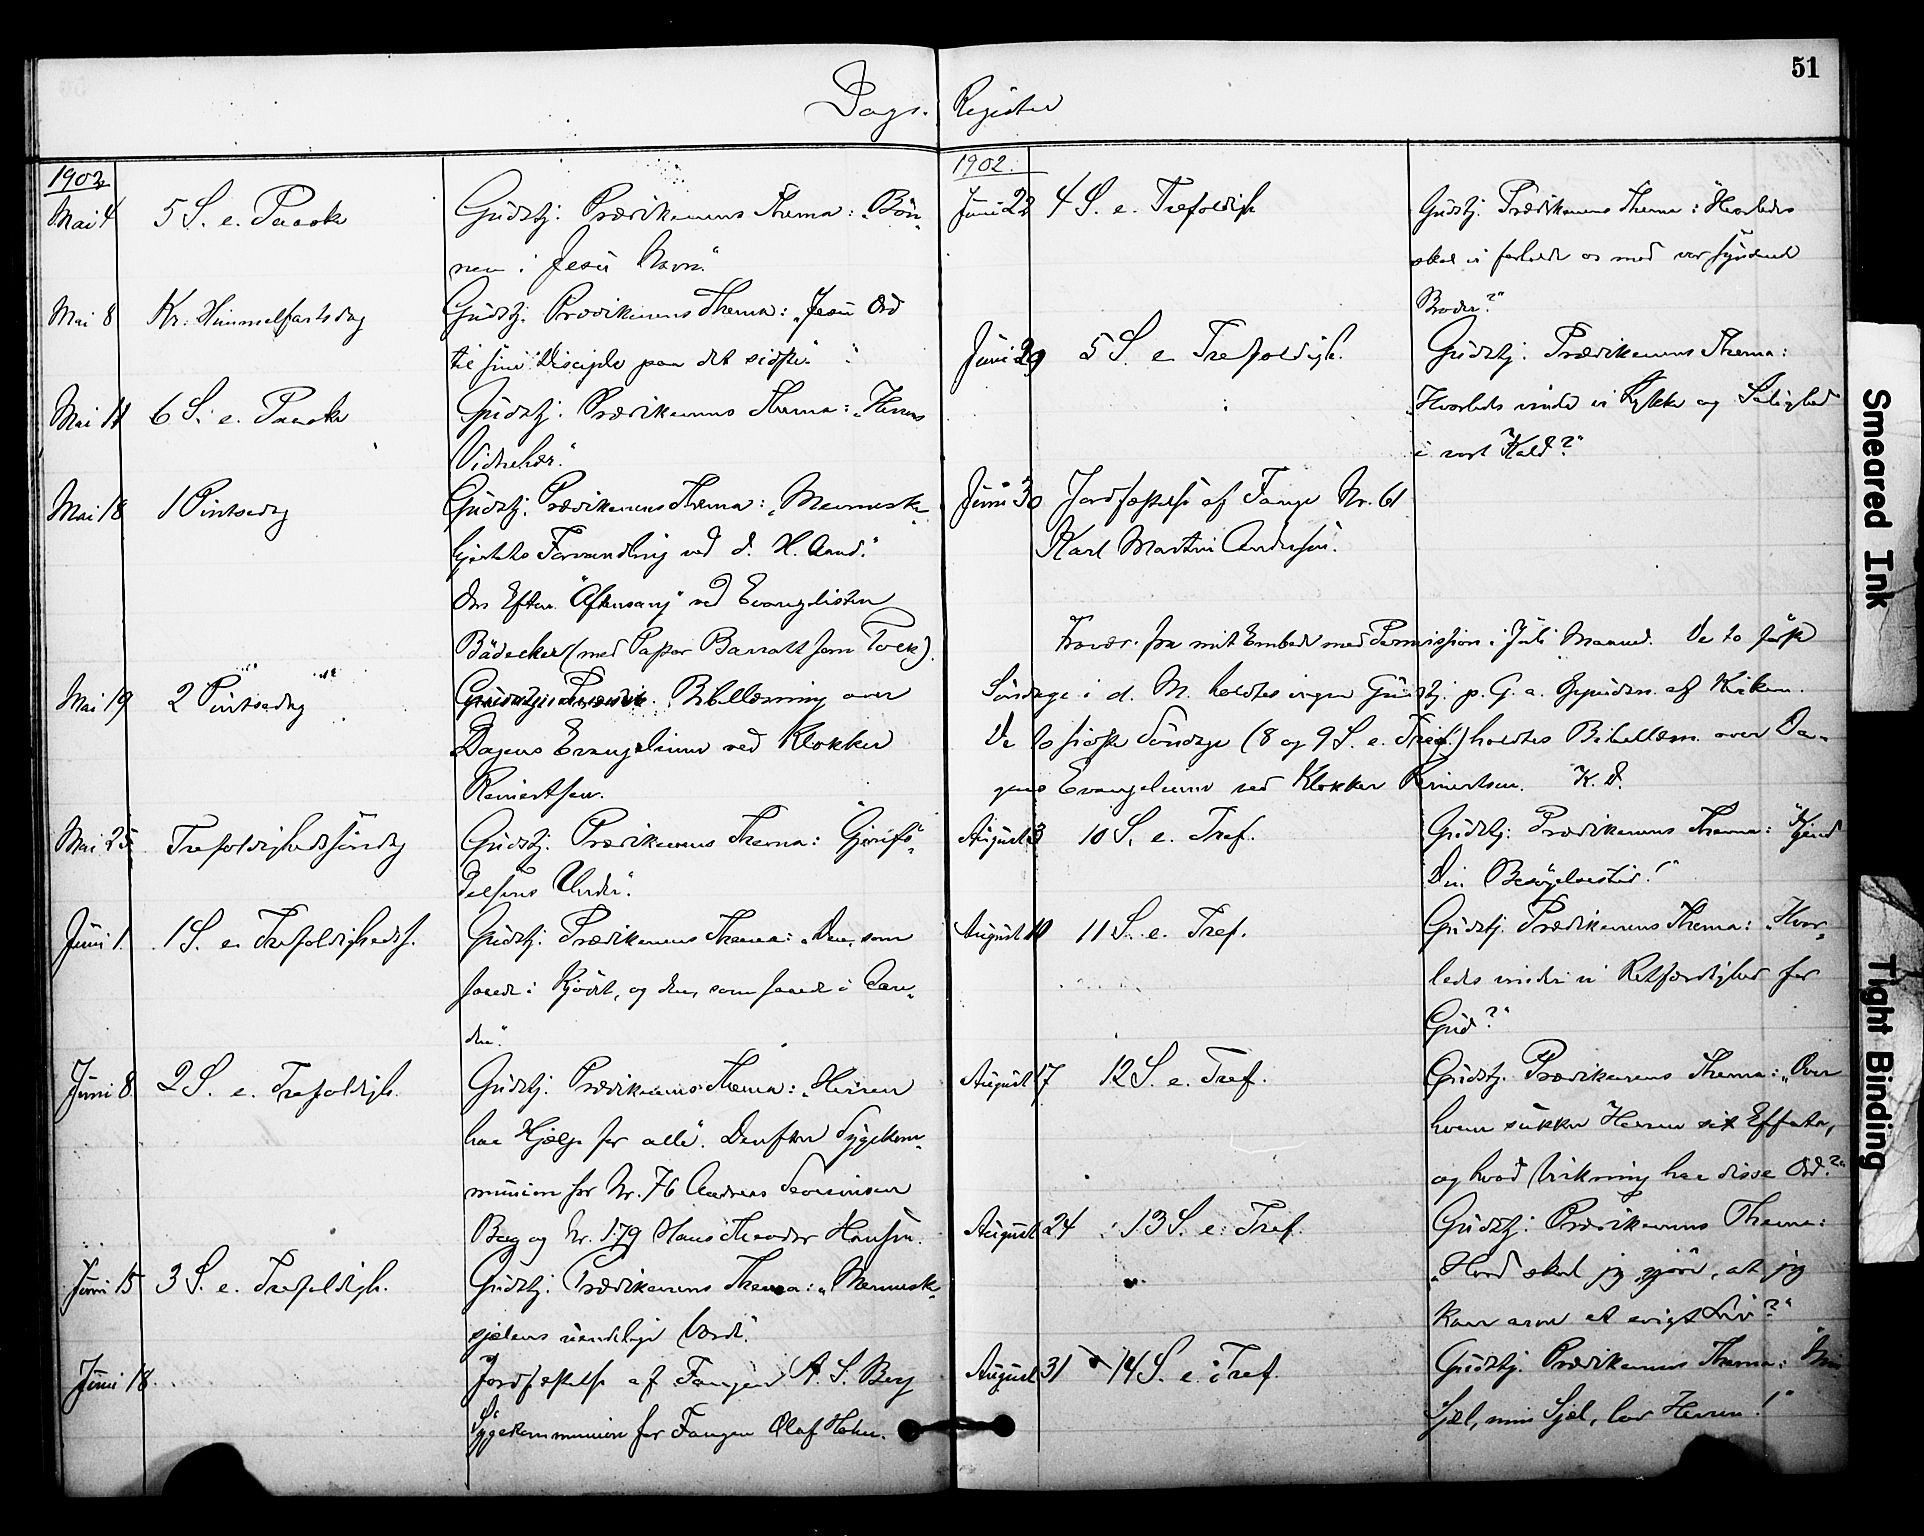 51
Dags. Register
1902
Mai 4 5 S. e. Paaske Gudstj. Prædikenens Thema: „Bön-
nen i Jesu Navn."
Mai 8 Kr. Himmelfartsdag Gudstj. Prædikenens Thema: „Jesu Ord
til sine Disciple paa det sidste."
Mai 11 6 S. e. Paaske Gudstj. Prædikenens Thema: „Herrens
Vidnehær."
Mai 18 1 Pintsedag Gudstj. Prædikenens Thema: „Menneske-
hjertets Forvandling ved d. H. Aand."
Om Efterm. "Aftensang" ved Evangelisten
Bädecker (med Pastor Barratt som Tolk).
Mai 19 2 Pintsedag Bibellæsning over
Dagens Evangelium ved Klokker
Reinertsen.
Mai 25 Trefoldighedssöndag Gudstj. Prædikenens Thema: "Gjenfö-
delsens Under".
Juni 1 1 S. e. Trefoldigheds. Gudstj. Prædikenens Thema: „Den, som
saaede i Kjödet, og den, som saaede i Aan-
den".
Juni 8 2 S. e. Trefoldigh. Gudstj. Prædikenens Thema: „Herren
har Hjælp for alle". Derefter Sygekom-
munion for Nr. 76 Andreas Severinsen
Berg og Nr. 179 Hans Theodor Hansen.
Juni 15 3 S. e. Trefoldigh. Gudstj. Prædikenens Thema: „Menneske-
sjælens uendelige Værdi".
Juni 18 Jordfæstelse af Fangen A. S. Berg
Sygekommunion for Fangen Olaf
1902.
Juni 22 4 S. e. Trefoldigh Gudstj. Prædikenens Thema: "Hvorledes
skal vi forholde os mod vor syndende
Broder?"
Juni 29 5 S. e. Trefoldigh. Gudstj. Prædikenens Thema:
„Hvorledes vinde vi Lykke og Salighed
i vort Kald?"
Juni 30 Jordfæstelse af Fange Nr. 61
Karl Martin Andersen.
Fravær. fra mit Embede med Permission i Juli Maaned. De to første
Söndage i d. M. holdtes ingen Gudstj. p. G. a. Opudsn. af Kirken.
De to sidste Söndage (8 og 9 S. e. Tref.) holdtes Bibellæsn. over Da-
gens Evangelium ved Klokker Reinertsen. K. D.
August 3 10 S. e. Tref. Gudstj. Prædikenens Thema: "Kjend
Din Besøgelsestid!"
August 10 11 S. e. Tref. Gudstj. Prædikenens Thema: „Hvor-
ledes vinder vi Retfærdighed for
Gud?"
August 17 12 S. e. Tref. Gudstj. Prædikenens Thema: „Over
hvem sukker Herren sit Effata,
og hvad Virkning har disse Ord?"
August 24 13 S. e. Tref. Gudstj. Prædikenens Thema:
„Hvad skal jeg gjöre, at jeg
kan arve et evigt Liv?"
August 31 14 S. e. Tref. Gudstj. Prædikenens Thema: "Min
Sjæl, min Sjæl, lov Herren!"
Smeared Ink
Tight Binding